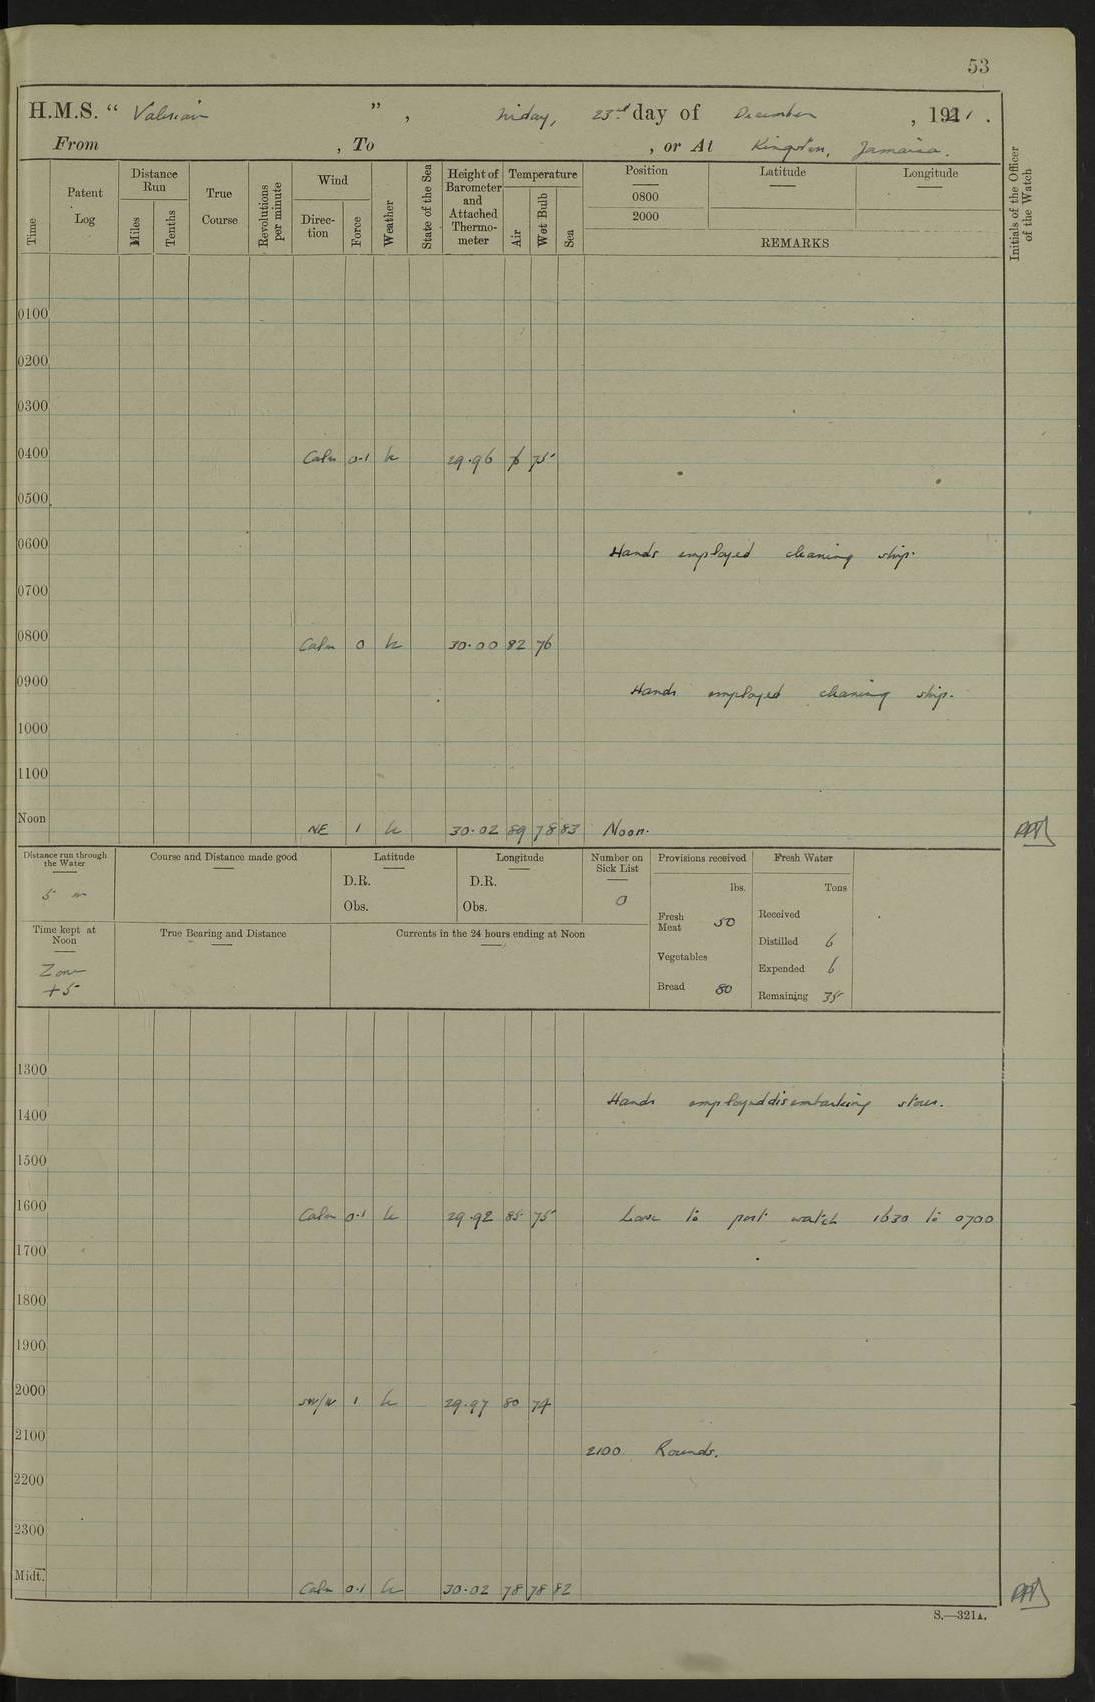 53
H.M.S. “ Valerian ”, Friday, 23rd day of December, 1921.
From , To , or At Kingston, Jamaica.
Time
Patent Log
Distance Run
Miles
Tenths
True Course
Revolutions per minute
Wind
Direction
Force
Weather
State of the Sea
Height of Barometer and Attached Thermometer
Temperature
Air
Wet Bulb
Sea
Position
0800
2000
Latitude
Longitude
REMARKS
Initials of the Officer of the Watch
0100
0200
0300
0400 Calm 0-1 29.96 75
0500
0600 Hands employed cleaning ship.
0700
0800 Calm 0 30.00 82 76
0900 Hands employed cleaning ship.
1000
1100
Noon NE 1 30.02 89 78 83 Noon.
Distance run through the Water
5
Course and Distance made good
Latitude
D.R.
Obs.
Longitude
D.R.
Obs.
Number on Sick List
0
Provisions received
lbs.
Fresh Meat 50
Vegetables
Bread 80
Fresh Water
Tons
Received
Distilled 6
Expended 6
Remaining 35
Time kept at Noon
Zone
+5
True Bearing and Distance
Currents in the 24 hours ending at Noon
1300
Hands employed disembarking stores.
1400
1500
1600 Calm 0-1 29.92 85 75 Leave to port watch 1630 to 0700
1700
1800
1900
2000 1 29.97 80 74
2100 2100 Rounds.
2200
2300
Midt. Calm 0-1 30.02 78 78 82
S.—321A.